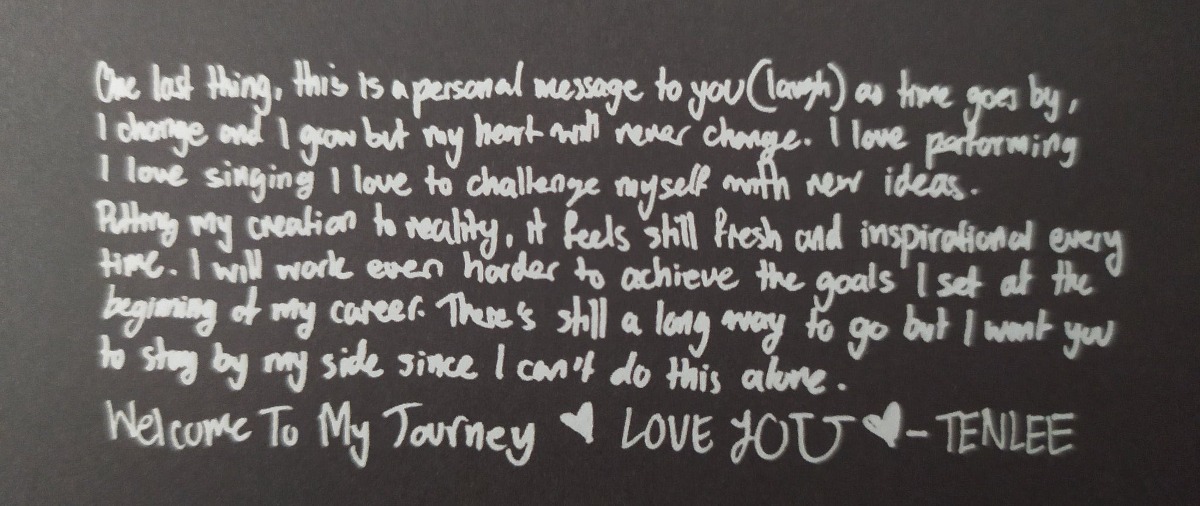 One last thing, this is a personal message to you (laugh) as time goes by,
I change and I grow but my heart will never change. I love performing
I love singing I love to challenge myself with new ideas.
Putting my creation to reality, it feels still fresh and inspirational every
time. I will work even harder to achieve the goals I set at the
beginning of my career. There's still a long way to go but I want you
to stay by my side since I can't do this alone.
Welcome To My Journey ♥ LOVE YOU ♥ - TENLEE